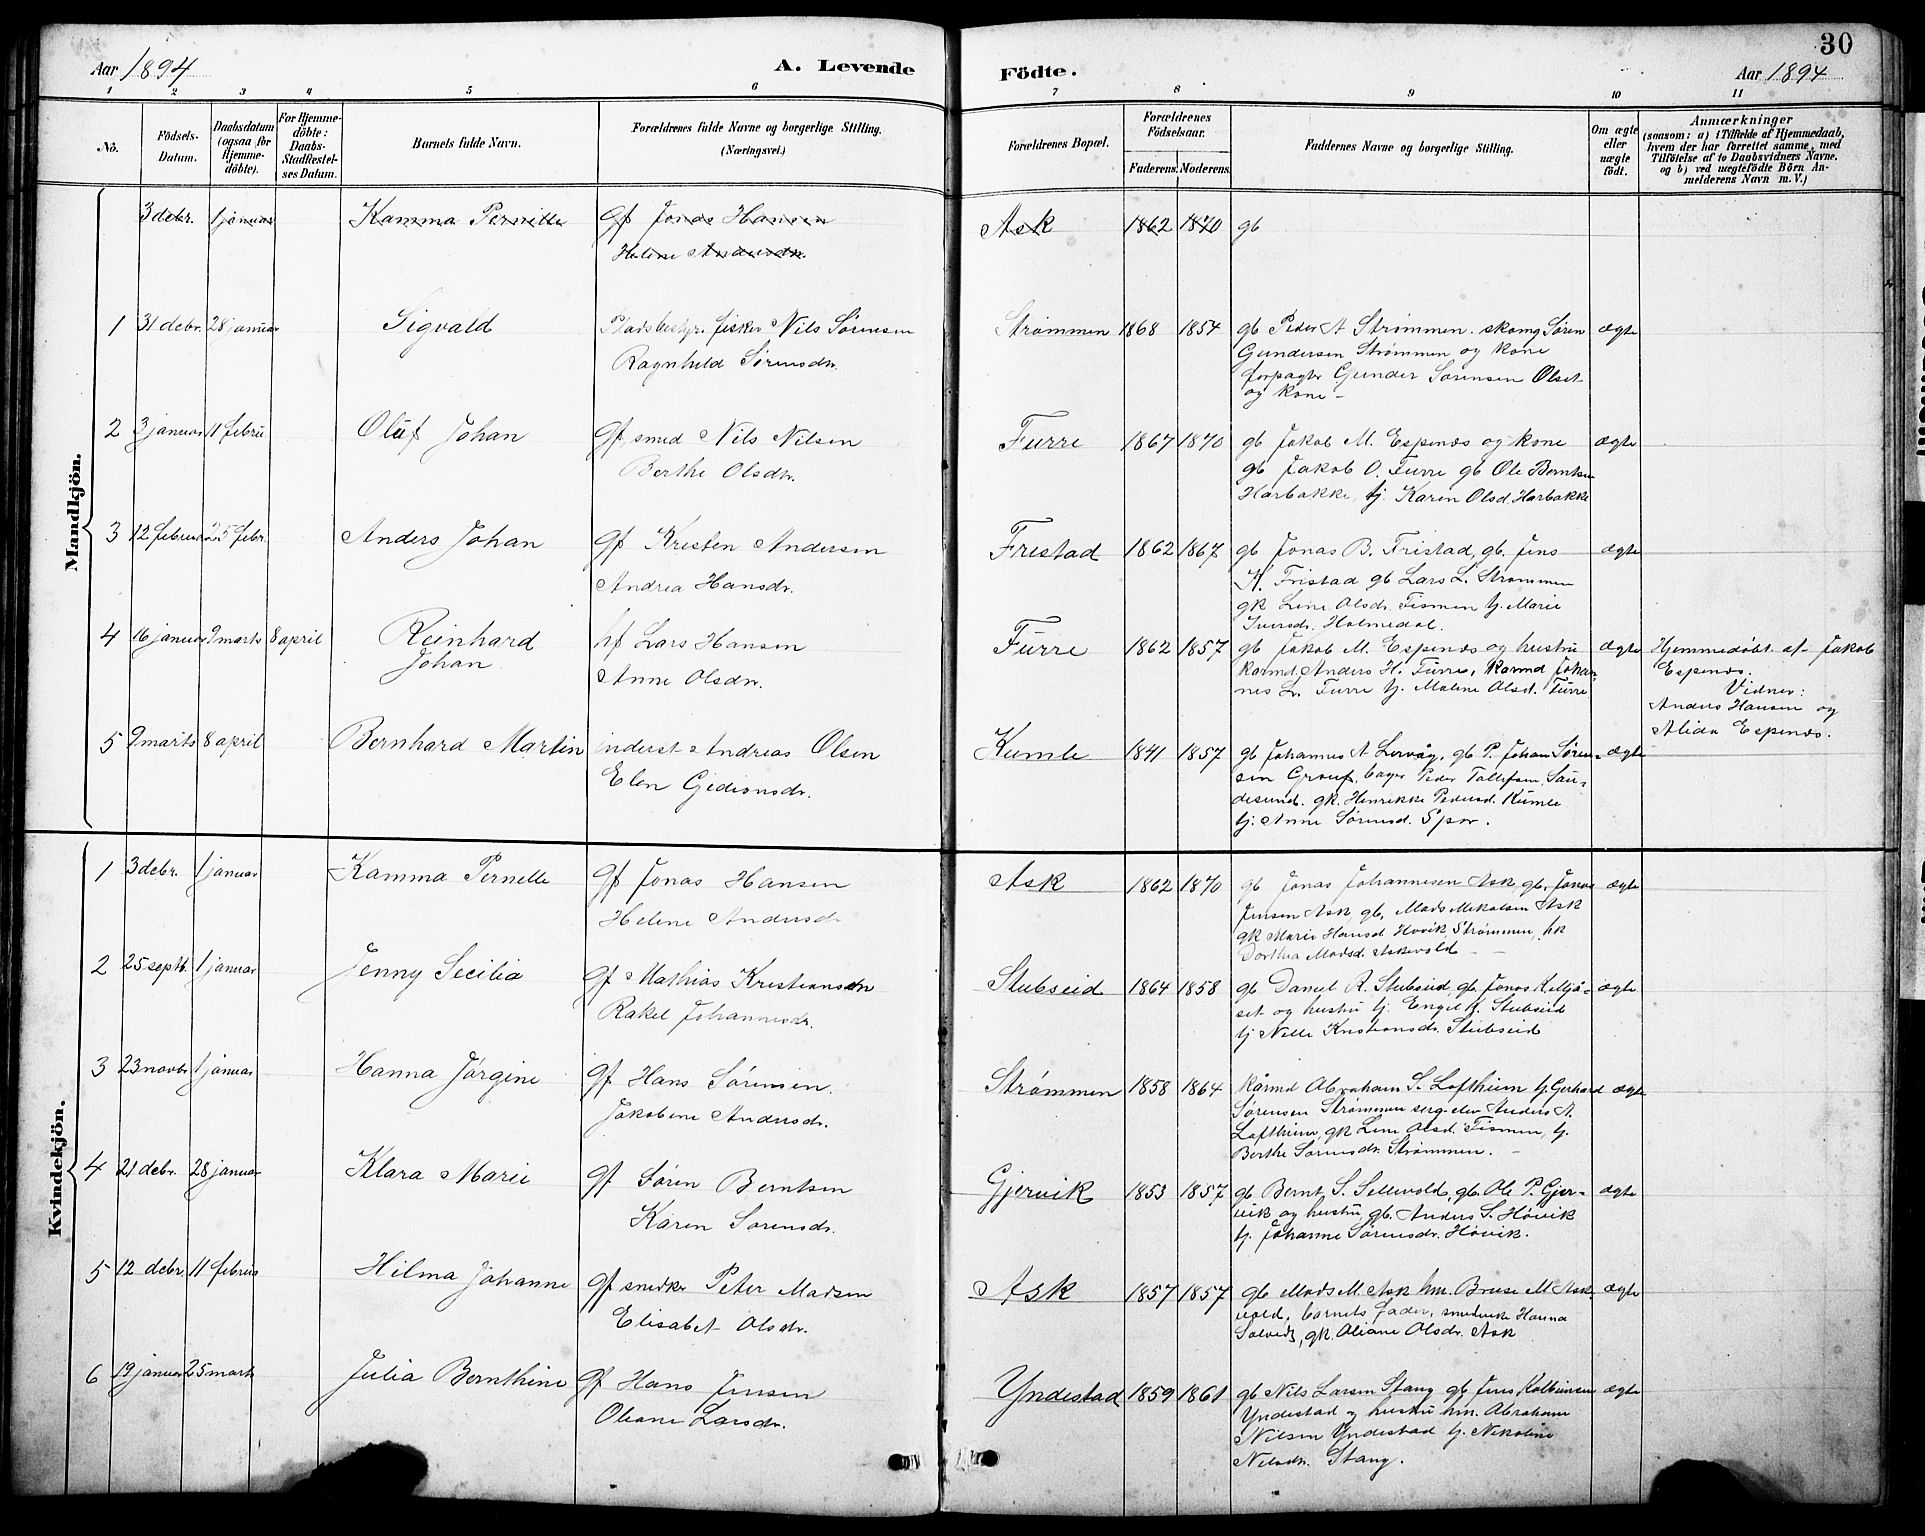 30
Aar 1894
A. Levende Födte.
Aar 1894
1 2 3 4 5 6 7 8 9 10 11
No.
Födsels-Datum.
Daabsdatum (ogsaa for Hjemme-döbte).
For Hjemme-döbte: Daabs-Stadfestel-ses Datum.
Barnets fulde Navn.
Forældrenes fulde Navne og borgerlige Stilling.
(Næringsvei.)
Forældrenes Bopæl.
Forældrenes Födselsaar.
Faderens. Moderens.
Faddernes Navne og borgerlige Stilling.
Om ægte eller uægte födt.
Anmærkninger
(saasom: a) i Tilfælde af Hjemmedaab,
hvem der har forrettet samme, med
Tilföielse af to Daabsvidners Navne,
og b) ved uægtefödte Börn An-
melderens Navn m. V.)
Mandkjön.
3 debr. 1 januar Kamma Pernille gf Jonas Hansen Ask 1862 1870 gb
Helene Andersdr.
1 31 debr. 28 januar Sigvald Pladsbestyr. fisker Nils Sørensen Strømmen 1868 1854 gb Peder A Strømmen. skomg Søren ægte
Ragnhild Sørensdr. Gundersen Strømmen og kone
forpagter Gunder Sørensen Olset
og kone –
2 3 januar 11 febru Oluf Johan gf. smed Nils Nilsen Furre 1867 1870 gb Jakob M. Espenæs og kone ægte
Berthe Olsdr. gb Jakob O. Furre gb Ole Berntsen
Harbakke, tj. Karen Olsd. Harbakke
3 12 februar 25 febr. Anders Johan gf Kristen Andersen Frestad 1862 1867 gb Jonas B. Fristad, gb. Jens ægte
Andrea Hansdr. K. Fristad gb Lars L. Strømmen
gk Line Olsdr. Tismen tj. Marie
Iversdr. Holmedal.
4 16 januar 9 marts 8 april Reinhard Johan hf Lars Hansen Furre 1862 1857 gb Jakob M. Espenæs og hustru ægte Hjemmedøbt af Jakob
Anne Olsdr. Karmd Anders H. Furre, Karmd Johan- Espenæs.
nes L. Furre tj. Malene Olsd. Furre Vidner:
Anders Hansen og
Alida Espenæs.
5 9 marts 8 april Bernhard Martin inderst Andreas Olsen Kumle 1841 1857 gb Johannes A Lervåg, gb P. Johan Søren- ægte
Elen Gidionsdr. sen Grouf, bager Peder Tollefsen, Sau-
desund. gk. Henrikke Pedersd. Kumle
tj. Anne Sørensd. Spor.
Kvindekjön.
1 3 debr. 1 januar Kamma Pernelle gf Jonas Hansen Ask 1862 1870 gb Jonas Johannesen Ask, gb. Jonas ægte
Helene Andersdr Jensen Ask, gb, Mads Mikalsen Ask
gk Marie Hansd Hovik Strømmen, hk
Dorthea Madsd. Askevold –
2 25 septb. 1 januar Jenny Secilia gf Mathias Kristiansen Stubseid 1864 1858 gb Daniel R. Stubseid, gb. Jonas K. Mjå- ægte
Rakel Johannesdr. set og hustru tj. Engel J. Stubseid
tj Nelle Kristiansdr. Stubseid
3 23 novbr 1 januar Hanna Jørgine gf Hans Sørensen. Strømmen 1858 1864 Karmd Abraham S. Loftheim tj. Gerhard ægte
Jakobine Andersdr. Sørensen Strømmen serg-elev Anders A.
Loftheim, gk Line Olsd. Tismen, tj.
Berthe Sørensdr. Strømmen. –
4 21 debr. 28 januar Klara Marie gf Søren Berntsen Gjervik 1853 1857 gb Bernt S. Sellevold, gb. Ole P. Gjer- ægte
Karen Sørensdr. vik og hustru gb. Anders S. Høvik
tj. Johanne Sørensdr. Høvik.
5 12 debr. 11 februs Hilma Johanne gf snedker Peter Madsen Ask 1857 1857 gb Mads M. Ask hm. Bruse M Ask- ægte
Elisabet Olsdr. vold, barnets fader, Hanna
gk. Oliane Olsdr. Ask
6 19 januar 25 marts Julia Bernthine gf Hans Jensen Yndestad 1859 1861 gb Nils Larsen Stang gb Jens Kolbeinsen ægte
Oliane Larsdr. Yndestad og hustru hm. Abraham
Nilsen Yndestad tj. Nikoline
Nilsdr. Stang.